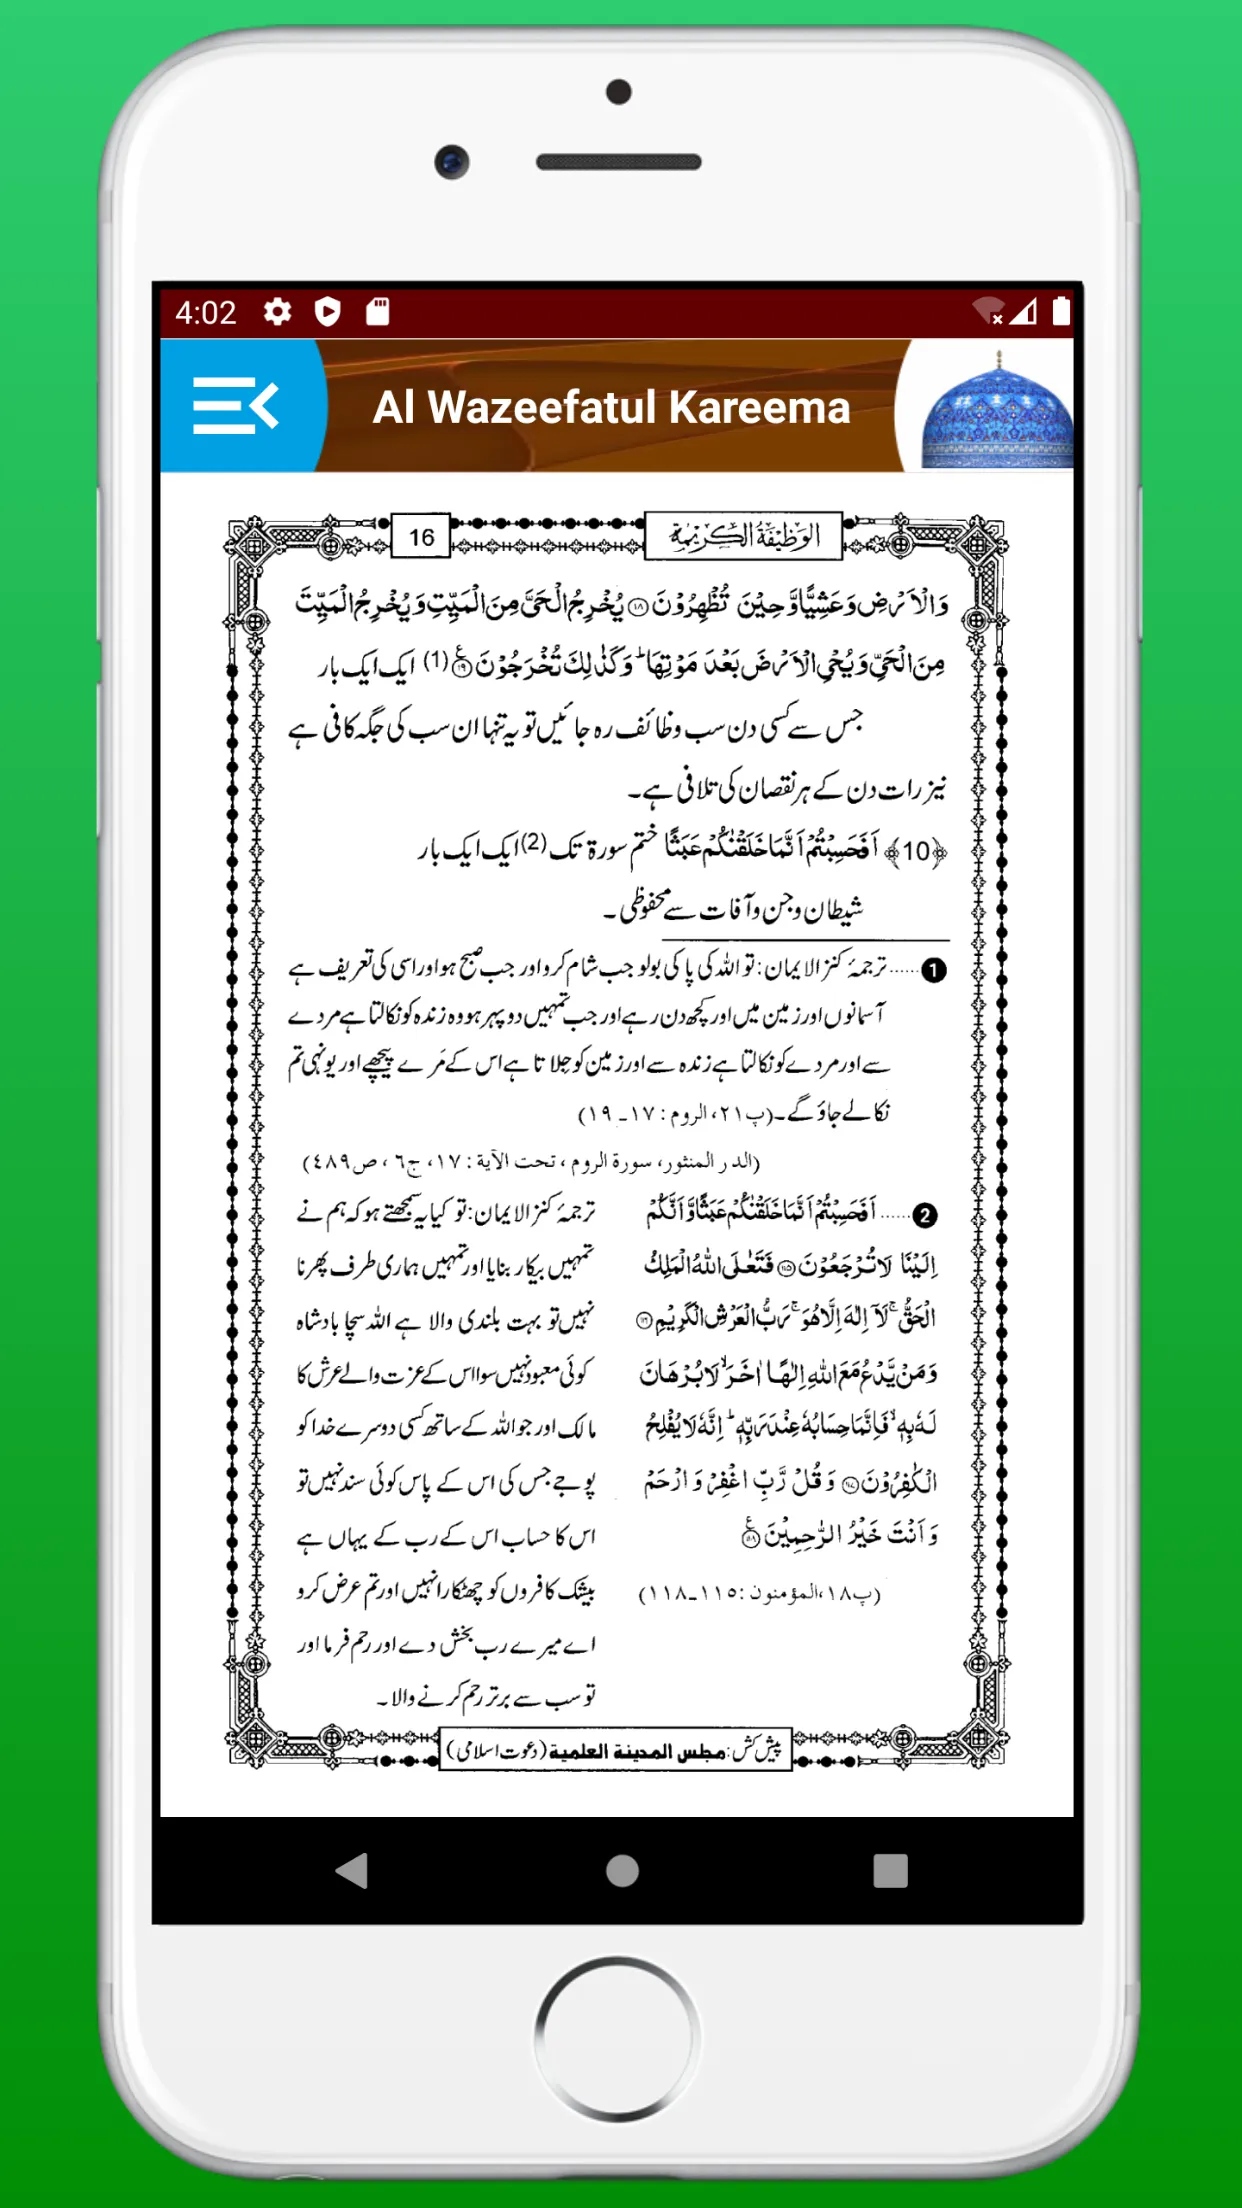 4:02
Al Wazeefatul Kareema
16
الوظيفة الكريمة
وَالْاَرْضِ وَعَشِيًّا وَّحِيْنَ تُظْهِرُوْنَ ﴿۱۸﴾ يُخْرِجُ الْحَيَّ مِنَ الْمَيِّتِ وَيُخْرِجُ الْمَيِّتَ
مِنَ الْحَيِّ وَيُحْيِ الْاَرْضَ بَعْدَ مَوْتِهَا ؕ وَكَذٰلِكَ تُخْرَجُوْنَ ﴿۱۹﴾ (1) ایک ایک بار
جس سے کسی دن سب وظائف رہ جائیں تو یہ تنہا ان سب کی جگہ کافی ہے
نیز رات دن کے ہر نقصان کی تلافی ہے۔
﴿10﴾ اَفَحَسِبْتُمْ اَنَّمَا خَلَقْنٰكُمْ عَبَثًا ختم سورۃ تک (2) ایک ایک بار
شیطان و جن و آفات سے محفوظی۔
1 ...... ترجمۂ کنز الایمان: تو اللہ کی پاکی بولو جب شام کرو اور جب صبح ہو اور اسی کی تعریف ہے
آسمانوں اور زمین میں اور کچھ دن رہے اور جب تمہیں دوپہر ہو وہ زندہ کو نکالتا ہے مردے
سے اور مردے کو نکالتا ہے زندہ سے اور زمین کو جِلاتا ہے اس کے مَرے پیچھے اور یونہی تم
نکالے جاؤ گے۔ (پ۲۱، الروم: ۱۷۔۱۹)
(الدر المنثور، سورة الروم، تحت الآية: ۱۷، ج٦، ص٤٨٩)
2 ...... اَفَحَسِبْتُمْ اَنَّمَا خَلَقْنٰكُمْ عَبَثًا وَّاَنَّكُمْ
اِلَيْنَا لَا تُرْجَعُوْنَ ﴿۱۱۵﴾ فَتَعٰلَى اللّٰهُ الْمَلِكُ
الْحَقُّ ۚ لَاۤ اِلٰهَ اِلَّا هُوَ ۚ رَبُّ الْعَرْشِ الْكَرِيْمِ ﴿۱۱۶﴾
وَمَنْ يَّدْعُ مَعَ اللّٰهِ اِلٰهًا اٰخَرَ ۙ لَا بُرْهَانَ
لَهٗ بِهٖ ۙ فَاِنَّمَا حِسَابُهٗ عِنْدَ رَبِّهٖ ؕ اِنَّهٗ لَا يُفْلِحُ
الْكٰفِرُوْنَ ﴿۱۱۷﴾ وَقُلْ رَّبِّ اغْفِرْ وَارْحَمْ
وَاَنْتَ خَيْرُ الرّٰحِمِيْنَ ﴿۱۱۸﴾
(پ۱۸، المؤمنون: ۱۱۵۔۱۱۸)
ترجمۂ کنز الایمان: تو کیا یہ سمجھتے ہو کہ ہم نے
تمہیں بیکار بنایا اور تمہیں ہماری طرف پھرنا
نہیں تو بہت بلندی والا ہے اللہ سچا بادشاہ
کوئی معبود نہیں سوا اس کے عزت والے عرش کا
مالک اور جو اللہ کے ساتھ کسی دوسرے خدا کو
پوجے جس کی اس کے پاس کوئی سند نہیں تو
اس کا حساب اس کے رب کے یہاں ہے
بیشک کافروں کو چھٹکارا نہیں اور تم عرض کرو
اے میرے رب بخش دے اور رحم فرما اور
تو سب سے برتر رحم کرنے والا۔
پیش کش: مجلس المدينة العلمية (دعوت اسلامی)